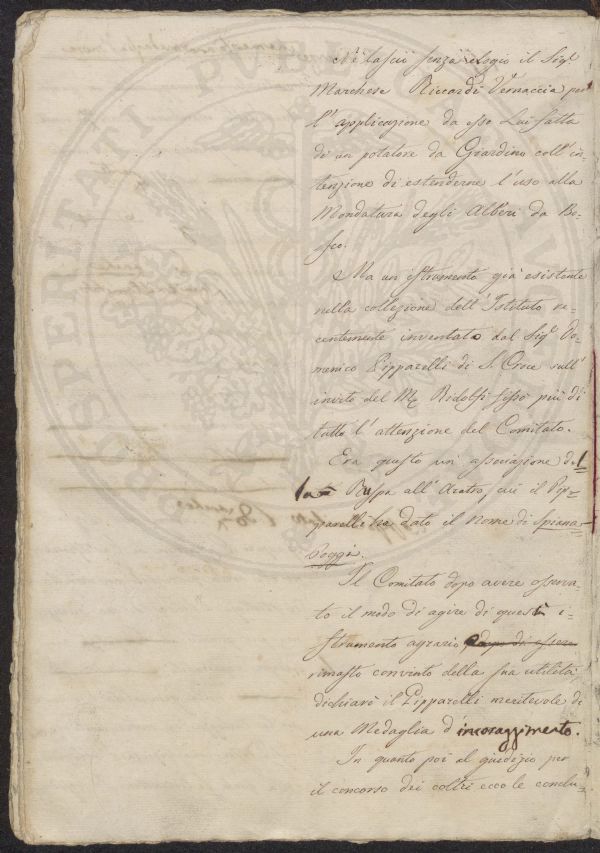 Nè lasciò senza elogio il Sigr
Marchese Riccardi Vernaccia per
l'applicazione da esso Lui fatta
di un potatore da Giardino coll'in=
tenzione di estenderne l'uso alla
Mondatura degli Alberi da Bo=
sco.
Ma un istrumento già esistente
nella collezione dell'Istituto re=
centemente inventato dal Sigr Do=
menico Pipparelli di S. Croce sull'
invito del Me Ridolfi fissò più di
tutto l'attenzione del Comitato.
Era questo un'associazione del
la Ruspa all'Aratro, cui il Pip=
parelli ha dato il nome di Spiana
Poggi.
Il Comitato dopo avere osserva=
to il modo di agire di questo i=
strumento agrario, dopo di essere
rimasto convinto della sua utilità,
dichiarò il Pipparelli meritevole di
una Medaglia d'incoraggimento.
In quanto poi al giudizio per
il concorso dei coltri ecco le conclu=
PROSPERITATI PUBLICAE